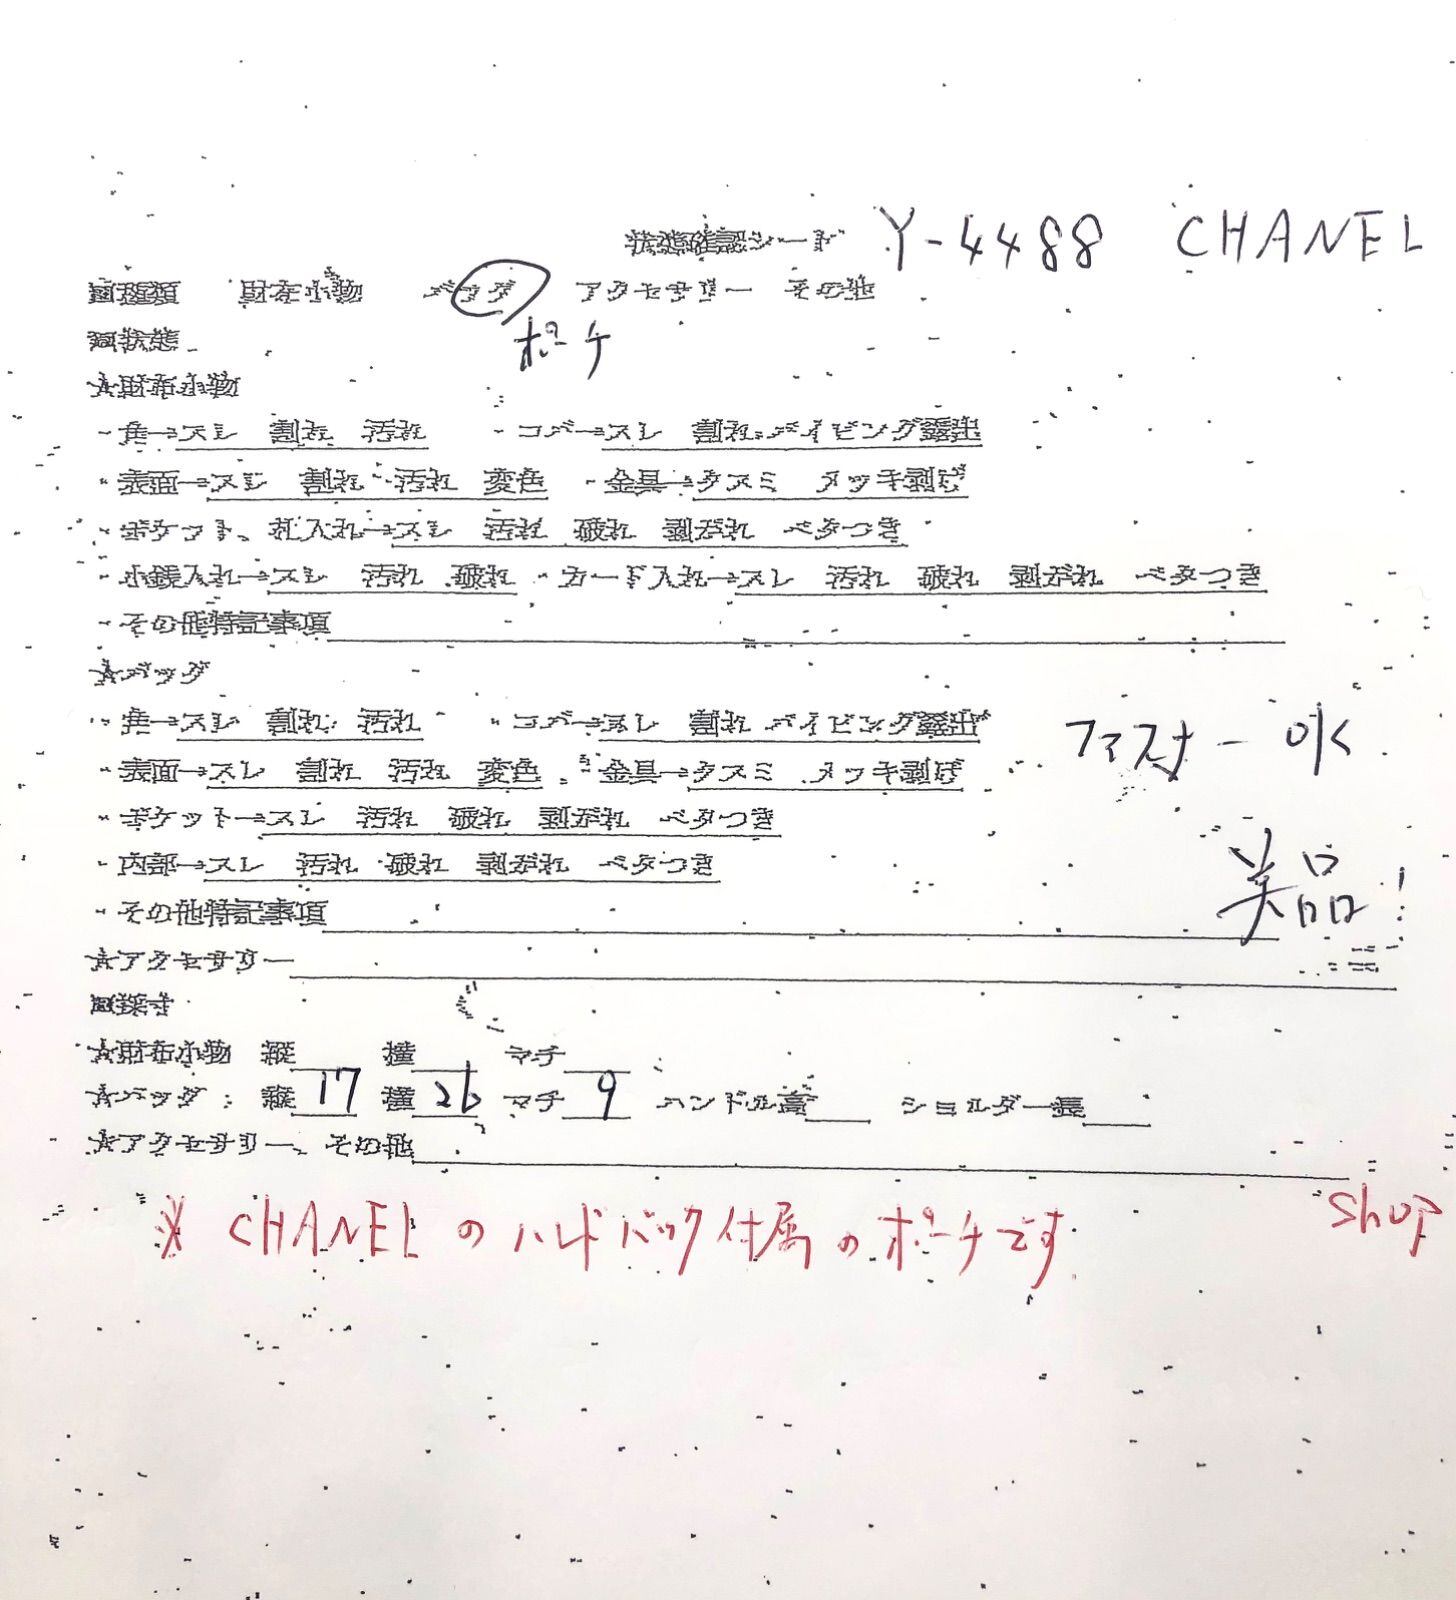 状態確認シート Y-4488 CHANEL
□種類 財布小物 バッグ アクセサリー その他
ポーチ
□状態
☆財布小物
・角→スレ 割れ 汚れ ・コバ→スレ 割れ パイピング露出
・表面→スレ 割れ 汚れ 変色 ・金具→クスミ メッキ剥げ
・ポケット、札入れ→スレ 汚れ 破れ 剥がれ ベタつき
・小銭入れ→スレ 汚れ 破れ ・カード入れ→スレ 汚れ 破れ 剥がれ ベタつき
・その他特記事項
☆バッグ
・角→スレ 割れ 汚れ ・コバ→スレ 割れ パイピング露出
・表面→スレ 割れ 汚れ 変色 ・金具→クスミ メッキ剥げ
ファスナー OK
・ポケット→スレ 汚れ 破れ 剥がれ ベタつき
・内部→スレ 汚れ 破れ 剥がれ ベタつき
美品!
・その他特記事項
☆アクセサリー
□採寸
☆財布小物 縦 横 マチ
☆バッグ: 縦 17 横 26 マチ 9 ハンドル高 ショルダー長
☆アクセサリー、その他
※ CHANELのハンドバック付属のポーチです
shop